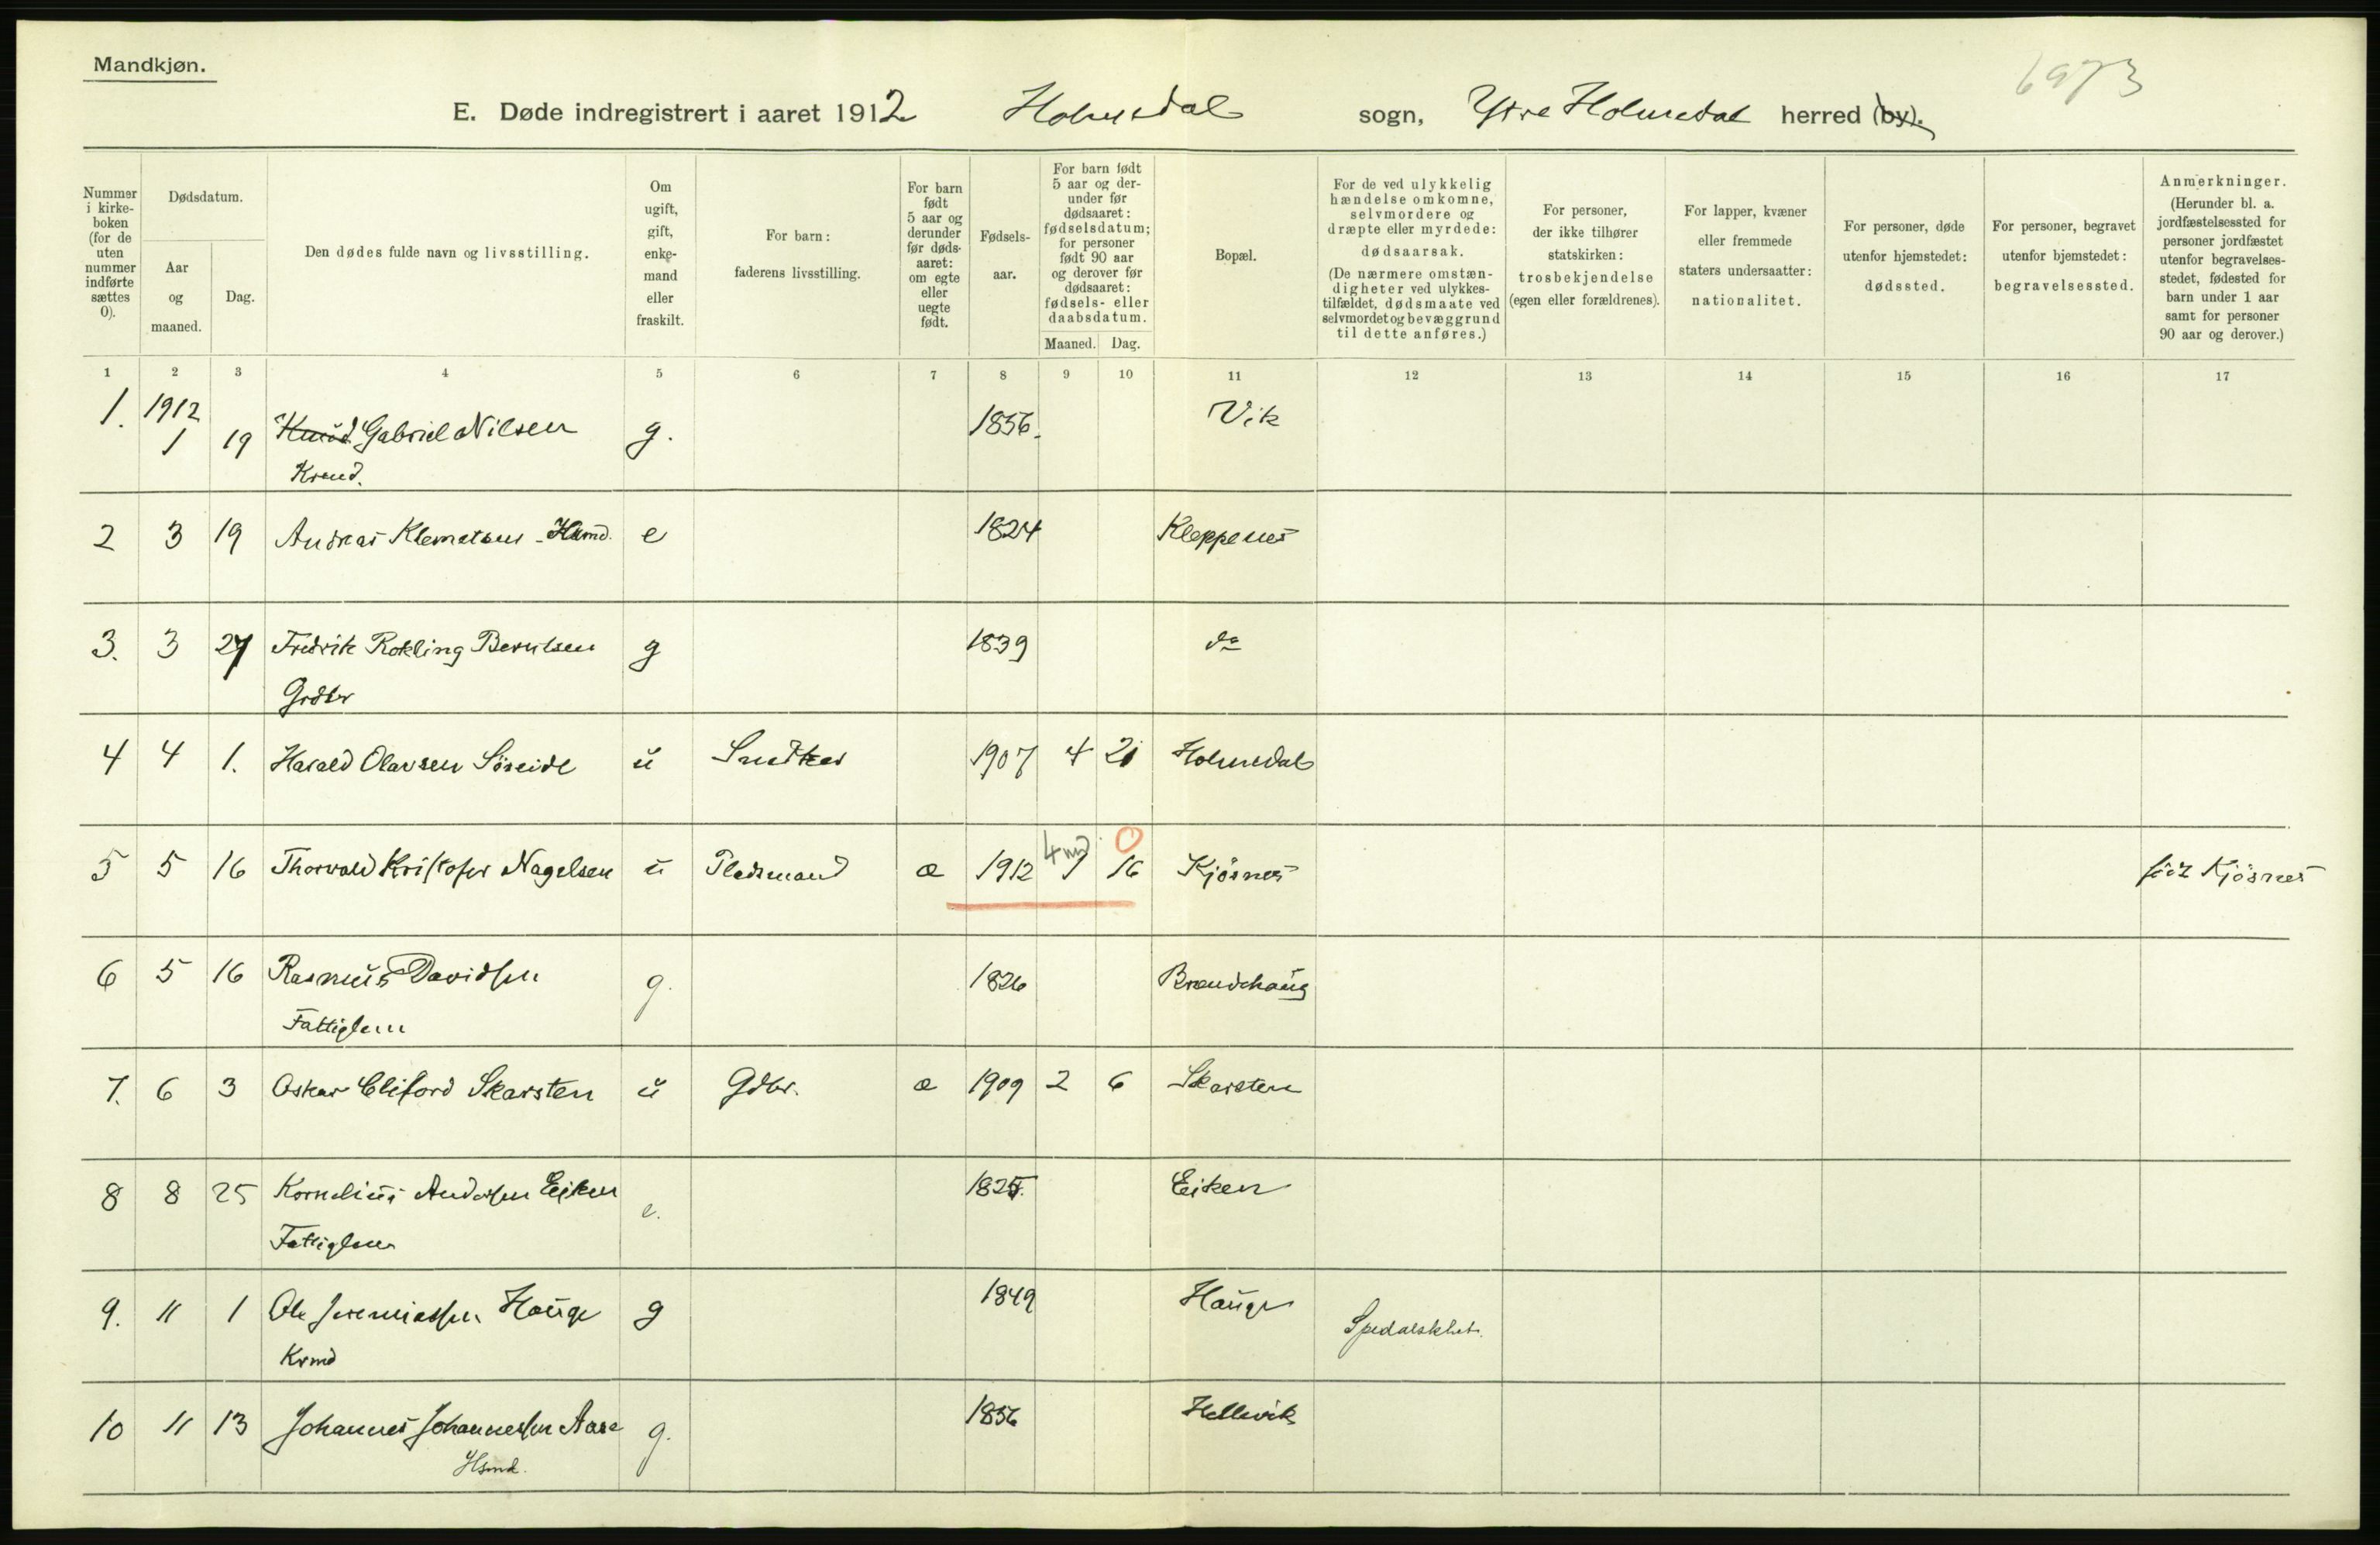 Mandkjøn.
6973
E. Døde indregistrert i aaret 1912 Holmedal sogn, Ytre Holmedal herred (by).
Nummer i kirkeboken (for de uten nummer indførte sættes 0).
Dødsdatum.
Aar og maaned.
Dag.
Den dødes fulde navn og livsstilling.
Om ugift, gift, enkemand eller fraskilt.
For barn: faderens livsstilling.
For barn født 5 aar og derunder før dødsaaret: om egte eller uegte født.
Fødselsaar.
For barn født 5 aar og derunder før dødsaaret: fødselsdatum; for personer født 90 aar og derover før dødsaaret: fødsels- eller daabsdatum.
Maaned. Dag.
Bopæl.
For de ved ulykkelig hændelse omkomne, selvmordere og dræpte eller myrdede: dødsaarsak. (De nærmere omstændigheter ved ulykkestilfældet, dødsmaate ved selvmordet og bevæggrund til dette anføres.)
For personer, der ikke tilhører statskirken: trosbekjendelse (egen eller forældrenes).
For lapper, kvæner eller fremmede staters undersaatter: nationalitet.
For personer, døde utenfor hjemstedet: dødssted.
For personer, begravet utenfor hjemstedet: begravelsessted.
Anmerkninger. (Herunder bl. a. jordfæstelsessted for personer jordfæstet utenfor begravelsesstedet, fødested for barn under 1 aar samt for personer 90 aar og derover.)
1 2 3 4 5 6 7 8 9 10 11 12 13 14 15 16 17
1. 1912 1 19 Knud Gabriel Nilsen g. 1856. Vik
Krmd.
2 3 19 Andreas Klemetsen - Hsmd. e 1824 Kleppenes
3. 3 27 Fredrik Rokling Berntsen g 1839 do
Grdbr
4 4 1. Harald Olavsen Søreide u Snedker 1907 4 21 Holmedal
5 5 16 Thorvald Kristofer Nagelsen u Pladsmand æ 1912 4 md 1 16 Kjøsnes født Kjøsnes
6 5 16 Rasmus Davidsen g. 1826 Brandehaug
Fattiglem
7. 6 3 Oskar Cliford Skarsten u Gdbr. æ 1909 2 6 Skarsten
8 8 25 Kornelius Andersen Eiken e. 1825. Eiken
Fattiglem
9. 11 1 Ole Jeremiassen Hauge g 1849 Hauge Spedalskhet.
Krmd
10 11 13 Johannes Johannessen Aase g. 1856 Hellevik
Hsmd.